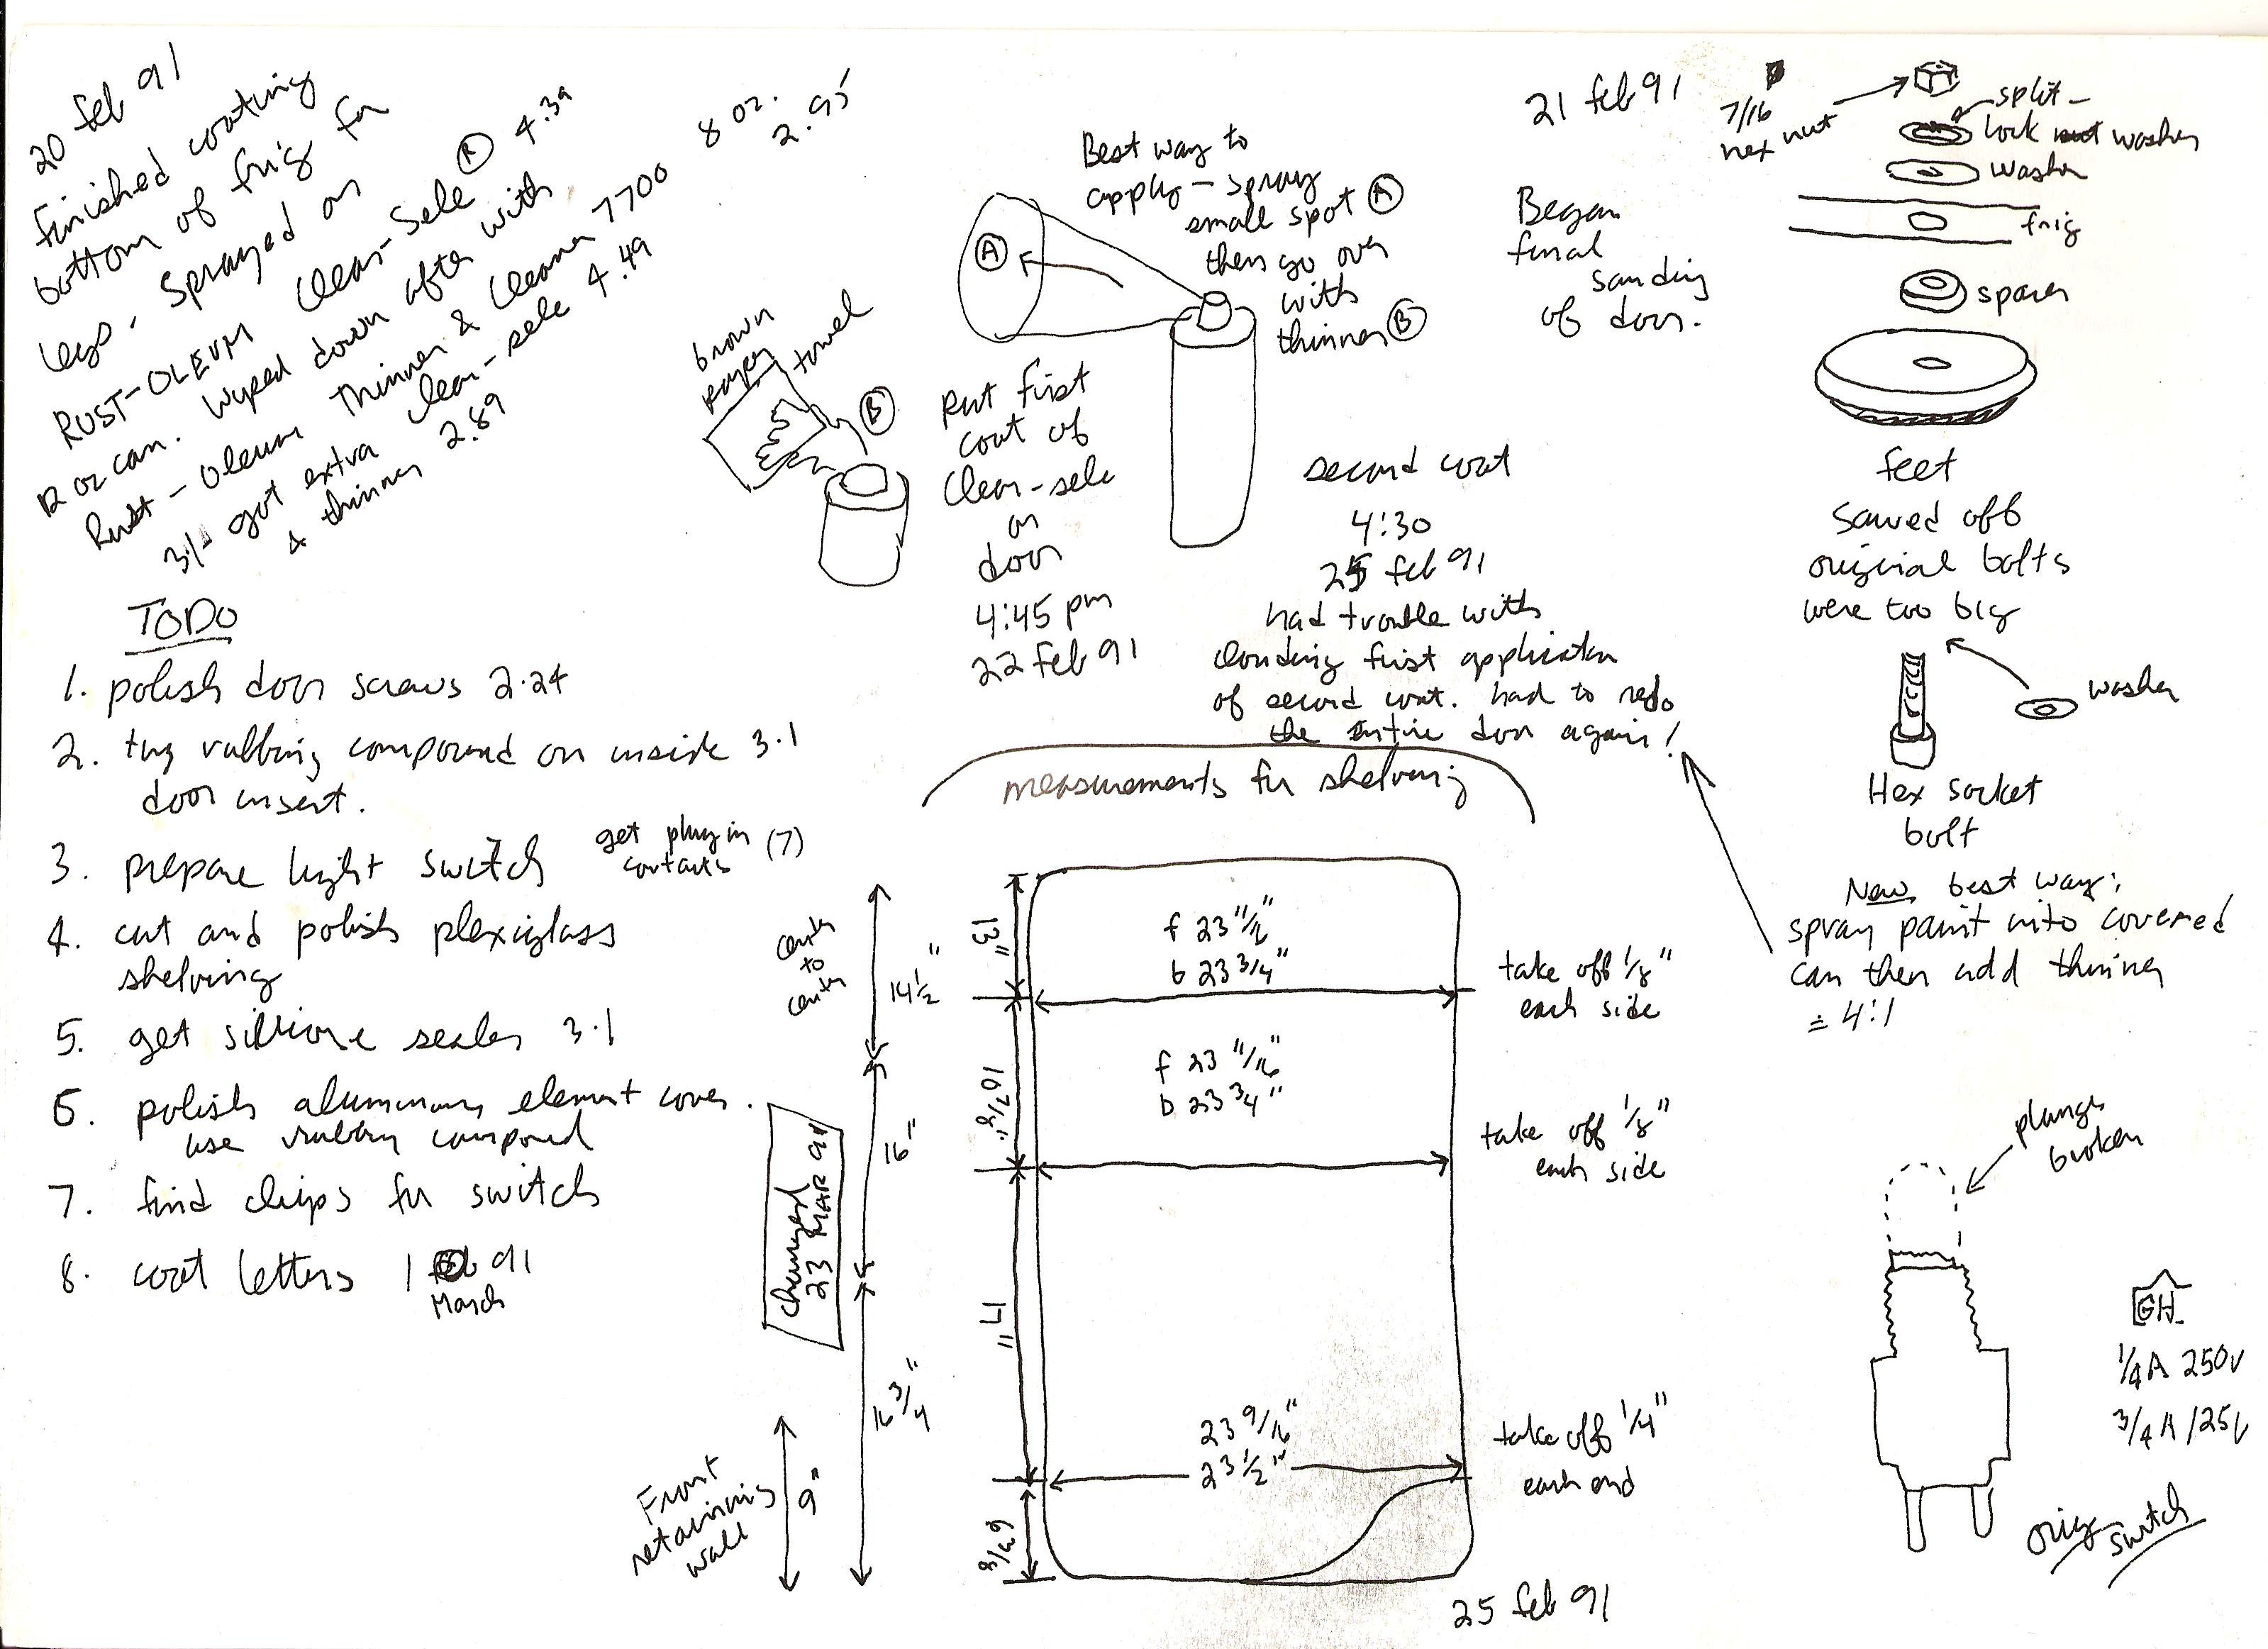 20 feb 91
Finished coating
bottom of frig for
legs. Sprayed on
RUST-OLEUM Clear-Sele ® 4.39
12 oz can. Wiped down after with
Rust-Oleum Thinner & Cleaner 7700 8 oz. 2.95
3/1 got extra clear-sele 4.49
& thinner 2.89
brown
paper towel
B
A
Best way to
apply - spray
small spot A
then go over
with
thinner B
Put first
coat of
Clear-sele
on
door
4:45 pm
22 feb 91
second coat
4:30
25 feb 91
had trouble with
clouding first application
of second coat. had to redo
the entire door again!
21 feb 91
Began
final
sanding
of door.
7/16
hex nut
split-
lock nut washer
washer
frig
spacer
feet
Sawed off
original bolts
were too big
washer
Hex socket
bolt
New best way:
spray paint into covered
can then add thinner
≐ 4:1
TODO
1. polish door screws 2.24
2. try rubbing compound on inside 3.1
door insert.
3. prepare light switch get plug in contacts (7)
4. cut and polish plexiglass
shelving
5. get sillicone sealer 3.1
6. polish aluminum element cover.
use rubbing compound
7. find clips for switch
8. coat letters 1 feb 91
March
measurements for shelving
center
to
center
14 1/2"
16"
16 3/4"
changed
23 MAR 91
Front
retaining
wall
9"
13"
10 7/8"
17"
6 3/8
f 23 11/16"
b 23 3/4"
take off 1/8"
each side
f 23 11/16"
b 23 3/4"
take off 1/8"
each side
23 9/16"
23 1/2"
take off 1/4"
each end
25 feb 91
plunger
broken
GH
1/4A 250V
3/4A 125V
orig
switch